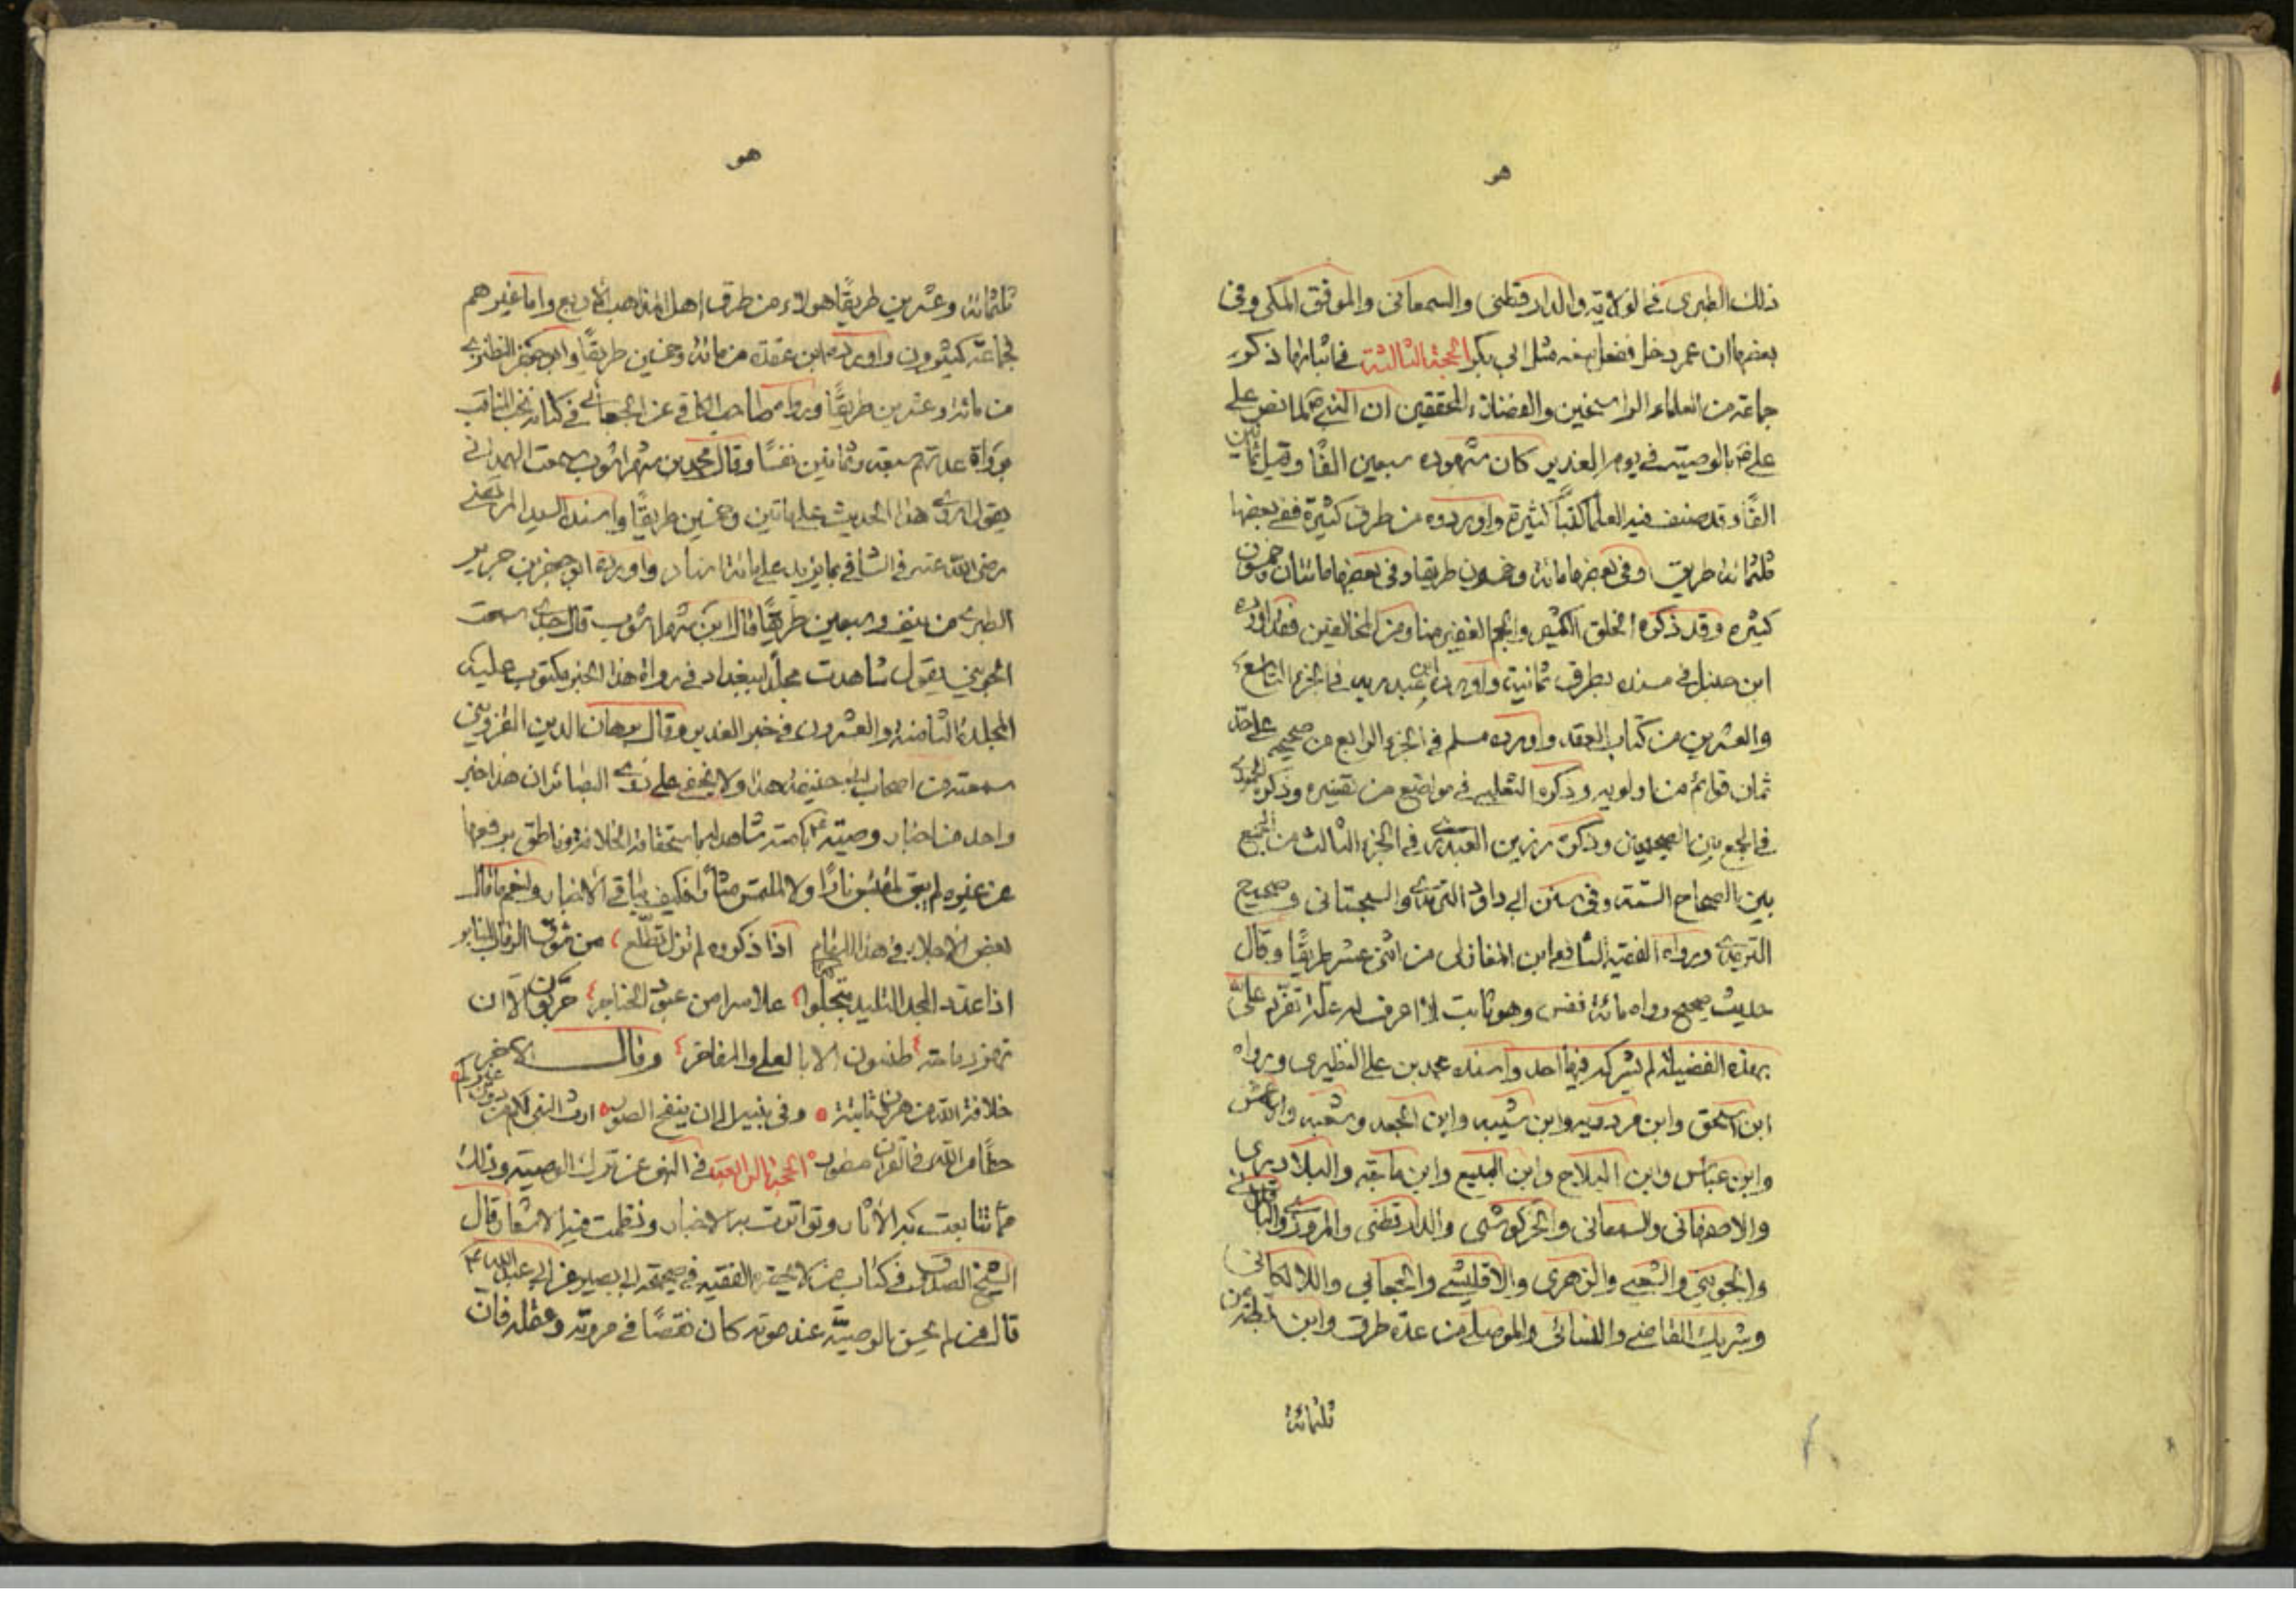 هو
ذلك الطبري في الولاية والدارقطني والسمعاني والموفق المكي وفي
بعضها ان عمر دخل ففعل معه مثل ابي بكر الحجة الثالثة في اثباتها ذكور
جماعة من العلماء الراسخين والفضلاء المحققين ان النبي ص لما نص على
علي ع بالوصية في يوم الغدير كان شهوده سبعين الفا وقيل ثمانين
الفا وقد صنف فيه العلما كتبا كثيرة واوردوه من طرق كثيرة ففي بعضها
ثلثمائة طريق وفي بعضها مائة وخمسون طريقا وفي بعضها مائتان وخمسون
كثيره وقد ذكره الخلق الكثير والجم الغفير منا ومن المخالفين فقد اورده
ابن حنبل في مسنده بطرق ثمانية واورده ابن عبد ربه في الجزء التاسع
والعشرين من كتاب العقد واورده مسلم في الجزء الرابع من صحيحه على حد
ثمان قوائم من اوله وذكره الثعلبي في مواضع من تفسيره وذكره الحميدي
في الجمع بين الصحيحين وذكره رزين العبدري في الجزء الثالث من الجمع
بين الصحاح الستة وفي سنن ابي داود الترمذي والسجستاني وصحيح
الترمذي ورواه الفقيه الشافعي ابن المغازلي من اثني عشر طريقا وقال
حديث صحيح رواه مائة نفس وهو ثابت لا اعرف له علة تفرد علي
بهذه الفضيلة لم يشركه فيها احد واسنده محمد بن علي النطيري ورواه
ابن اسحق وابن مردويه وابن شيبه وابن الجعد وشعبه والاعمش
وابن عباس وابن الثلاج وابن البيع وابن ماجه والبلاذري
والاصفهاني والسمعاني والخركوشي والدارقطني والمروزي والباقلاني
والجويني والشعبي والزهري والاقليشي والجعابي واللالكائي
وشريك القاضي والنسائي والموصلي من عدة طرق وابن بطة من
ثلثمائة
هو
ثلثمائة وعشرين طريقا هولاء من طرق اهل المذاهب الاربع واما غيرهم
فجماعة كثيرون واورده ابن عقدة من مائة وخمسين طريقا وابو جعفر الطبري
من مائة وعشرين طريقا ورواه صاحب الكافي عن الجعابي في كتابه نخب المناقب
برواة عدتهم سبعة وثمانين نفسا وقال محمد بن شهراشوب سمعت الهمداني
يقول اروي هذا الحديث على مائتين وخمسين طريقا واسند السيد المرتضى
رضي الله عنه في الشافي بما يزيد على مائة اسناد واورده ابو جعفر بن جرير
الطبري من نيف وسبعين طريقا قال ابن شهراشوب قال جدي سمعت
الجويني يقول شاهدت مجلدا ببغداد في رواة هذا الخبر مكتوب عليه
المجلدة الثامنة والعشرون في خبر الغدير وقال برهان الدين القزويني
سمعته من اصحاب ابي حنيفة هذا ولا يخفى على ذوي البصائر ان هذا خبر
واحد من اخبار وصيته ع كامته شاهد لهما استحقاقه الخلافة وناطق برفعها
عن غيره لم يبق لمقتبس نارا ولا لملتمس منارا فكيف بباقي الاخبار ولنعم ما قال
بعض الاجلاء في هذا المقام اذا ذكروه لم تزل تطلع من شوق الرقاب المنابر
اذا عقد المجد التليد تجلوا علا سرا من عبود الخناجر حرقون الا ان
تهز رماحه طنبون الا بالعلى والمفاخر وقال الاخر
خلافة الله من هرون ثابتة وفي بنيه الى ان ينفخ الصور ارث النبي لكم من دون غيركم
حقا من الله في القرآن مسطور الحجة الرابعة في النهي عن ترك الوصية وذلك
مما تتابعت به الاثار وتواترت به الاخبار ونظمت فيه الاشعار قال
الشيخ الصدوق في كتاب من لا يحضره الفقيه في صحيحة ابي بصير عن ابي عبد الله ع
قال من لم يحسن بالوصية عند موته كان نقصا في مروته وعقله فان